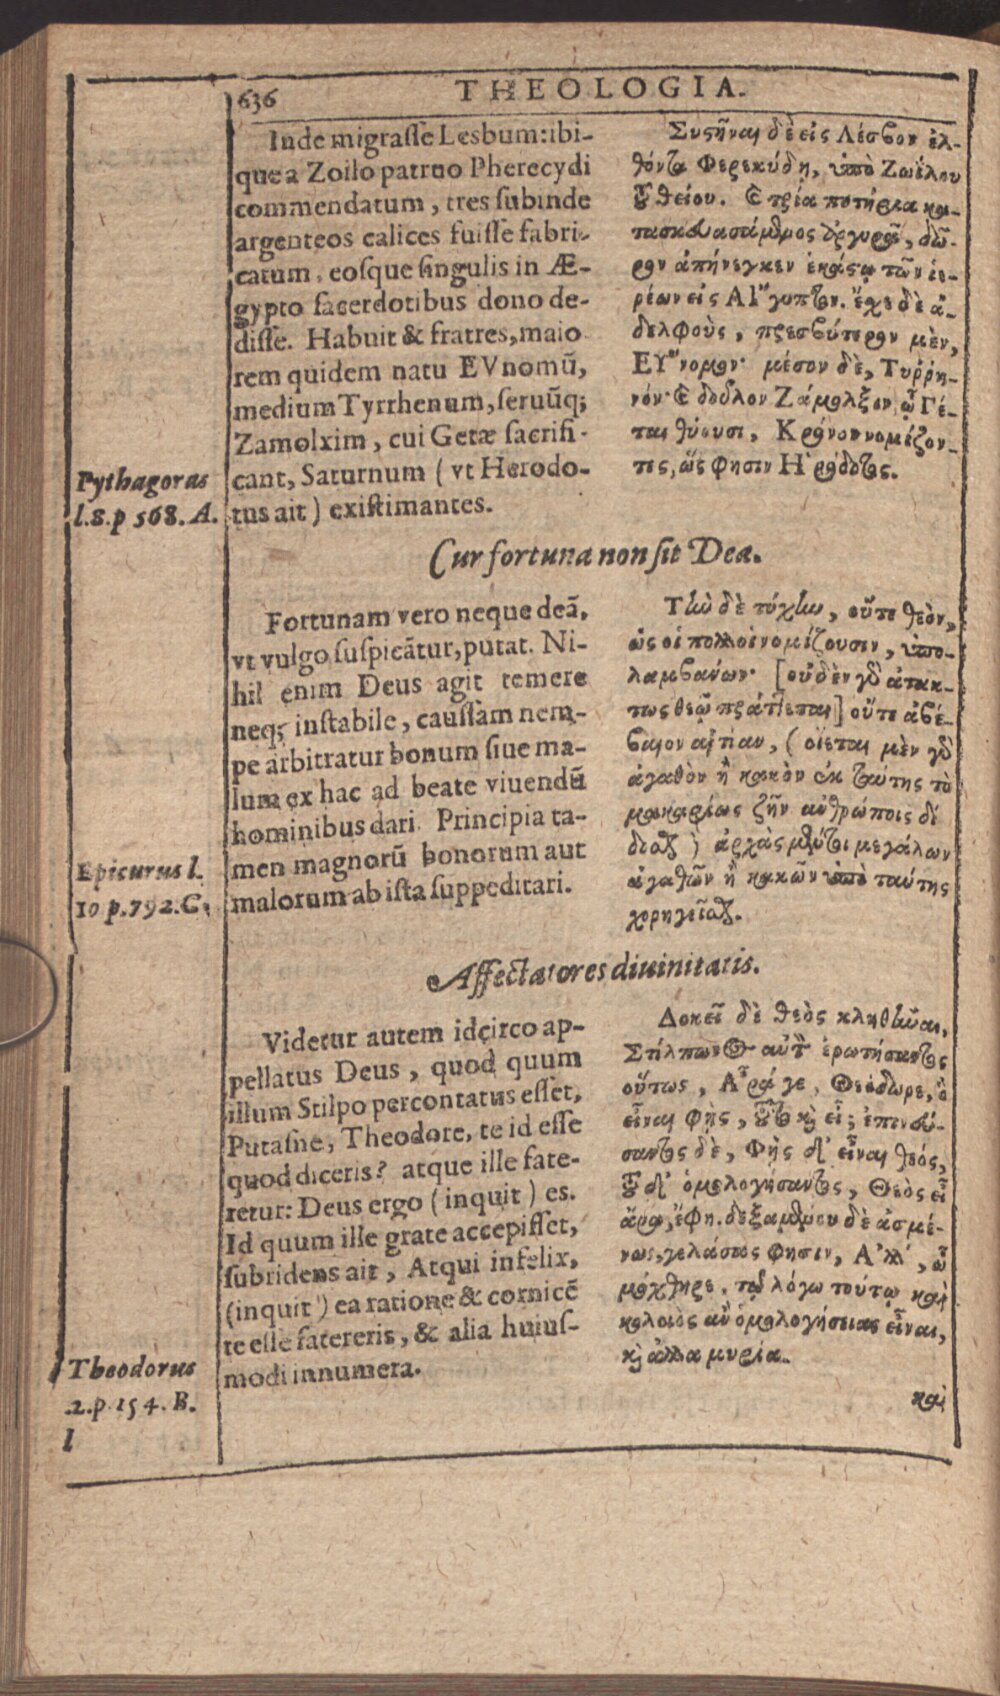 636
THEOLOGIA.
Inde migrasse Lesbum: ibi-
que a Zoilo patruo Pherecydi
commendatum, tres subinde
argenteos calices fuisse fabri-
catum, eosque singulis in Æ-
gypto sacerdotibus dono de-
disse. Habuit & fratres, maio
rem quidem natu EVnomū,
medium Tyrrhenum, seruūq;
Zamolxim, cui Getæ sacrifi-
cant, Saturnum (vt Herodo-
tus ait) existimantes.
Pythagoras
l.8.p 568. A.
Συςῆναι δὲ εἰς Λέσβον ἐλ-
θόντα Φερεκύδῃ, ὑπὸ Ζωΐλου
τοῦ θείου. καὶ τρία ποτήρια κα-
τασκευασάμενος ἀργυρᾶ, δῶ-
ρον ἀπήνεγκεν ἑκάςῳ τῶν ἱε-
ρέων εἰς Αἴγυπτον. ἔχε δὲ ἀ-
δελφοὺς, πρεσβύτερον μὲν,
ΕΥ῎νομον· μέσον δὲ, Τυῤῥη-
νόν· καὶ δοῦλον Ζάμολξιν, ᾧ Γέ-
ται θύουσι, Κρόνον νομίζον-
τες, ὥς φησιν Ἡρόδοτος.
Cur fortuna non sit Dea.
Fortunam vero neque deā,
vt vulgo suspicātur, putat. Ni-
hil enim Deus agit temere
neq; instabile, caussam nem-
pe arbitratur bonum siue ma-
lum ex hac ad beate viuendū
hominibus dari. Principia ta-
men magnorū bonorum aut
malorum ab ista suppeditari.
Epicurus l.
10 p.792.C.
Τὴν δὲ τύχην, οὔτε θεὸν,
ὡς οἱ πολλοὶ νομίζουσιν, ὑπο-
λαμβάνων· [οὐδὲν γὰρ ἀτάκ-
τως θεῷ πράττεται] οὔτε ἀβέ-
βαιον αἰτίαν, (οἴεται μὲν γὰρ
ἀγαθὸν ἢ κακὸν ἐκ ταύτης τὸ
μακαρίως ζῆν ἀνθρώποις δί
δοσθαι) ἀρχὰς μέντοι μεγάλων
ἀγαθῶν ἢ κακῶν ὑπὸ ταύτης
χορηγεῖσθαι.
Affectatores diuinitatis.
Videtur autem idcirco ap-
pellatus Deus, quod quum
illum Stilpo percontatus esset,
Putasne, Theodore, te id esse
quod diceris? atque ille fate-
retur: Deus ergo (inquit) es.
Id quum ille grate accepisset,
subridens ait, Atqui infelix,
(inquit) ea ratione & cornicē
te esse fatereris, & alia huius-
modi innumera.
Theodorus
.2.p.154. B.
l
Δοκεῖ δὲ θεὸς κληθῆναι,
Στίλπωνος αὐτὸν ἐρωτήσαντος
οὕτως, Ἆρά γε, Θεόδωρε, ὃ
εἶναι φῂς, τοῦτο καὶ εἶ; ἐπινεύ-
σαντος δὲ, Φῂς δ' εἶναι θεός,
τοῦ δ' ὁμολογήσαντος, Θεὸς εἶ
ἄρα, ἔφη. δεξαμένου δὲ ἀσμέ-
νως, γελάσας φησὶν, Ἀλλ', ὦ
μόχθηρε, τῷ λόγῳ τούτῳ καὶ
κολοιὸς ἂν ὁμολογήσειας εἶναι,
καὶ ἄλλα μυρία.
καὶ